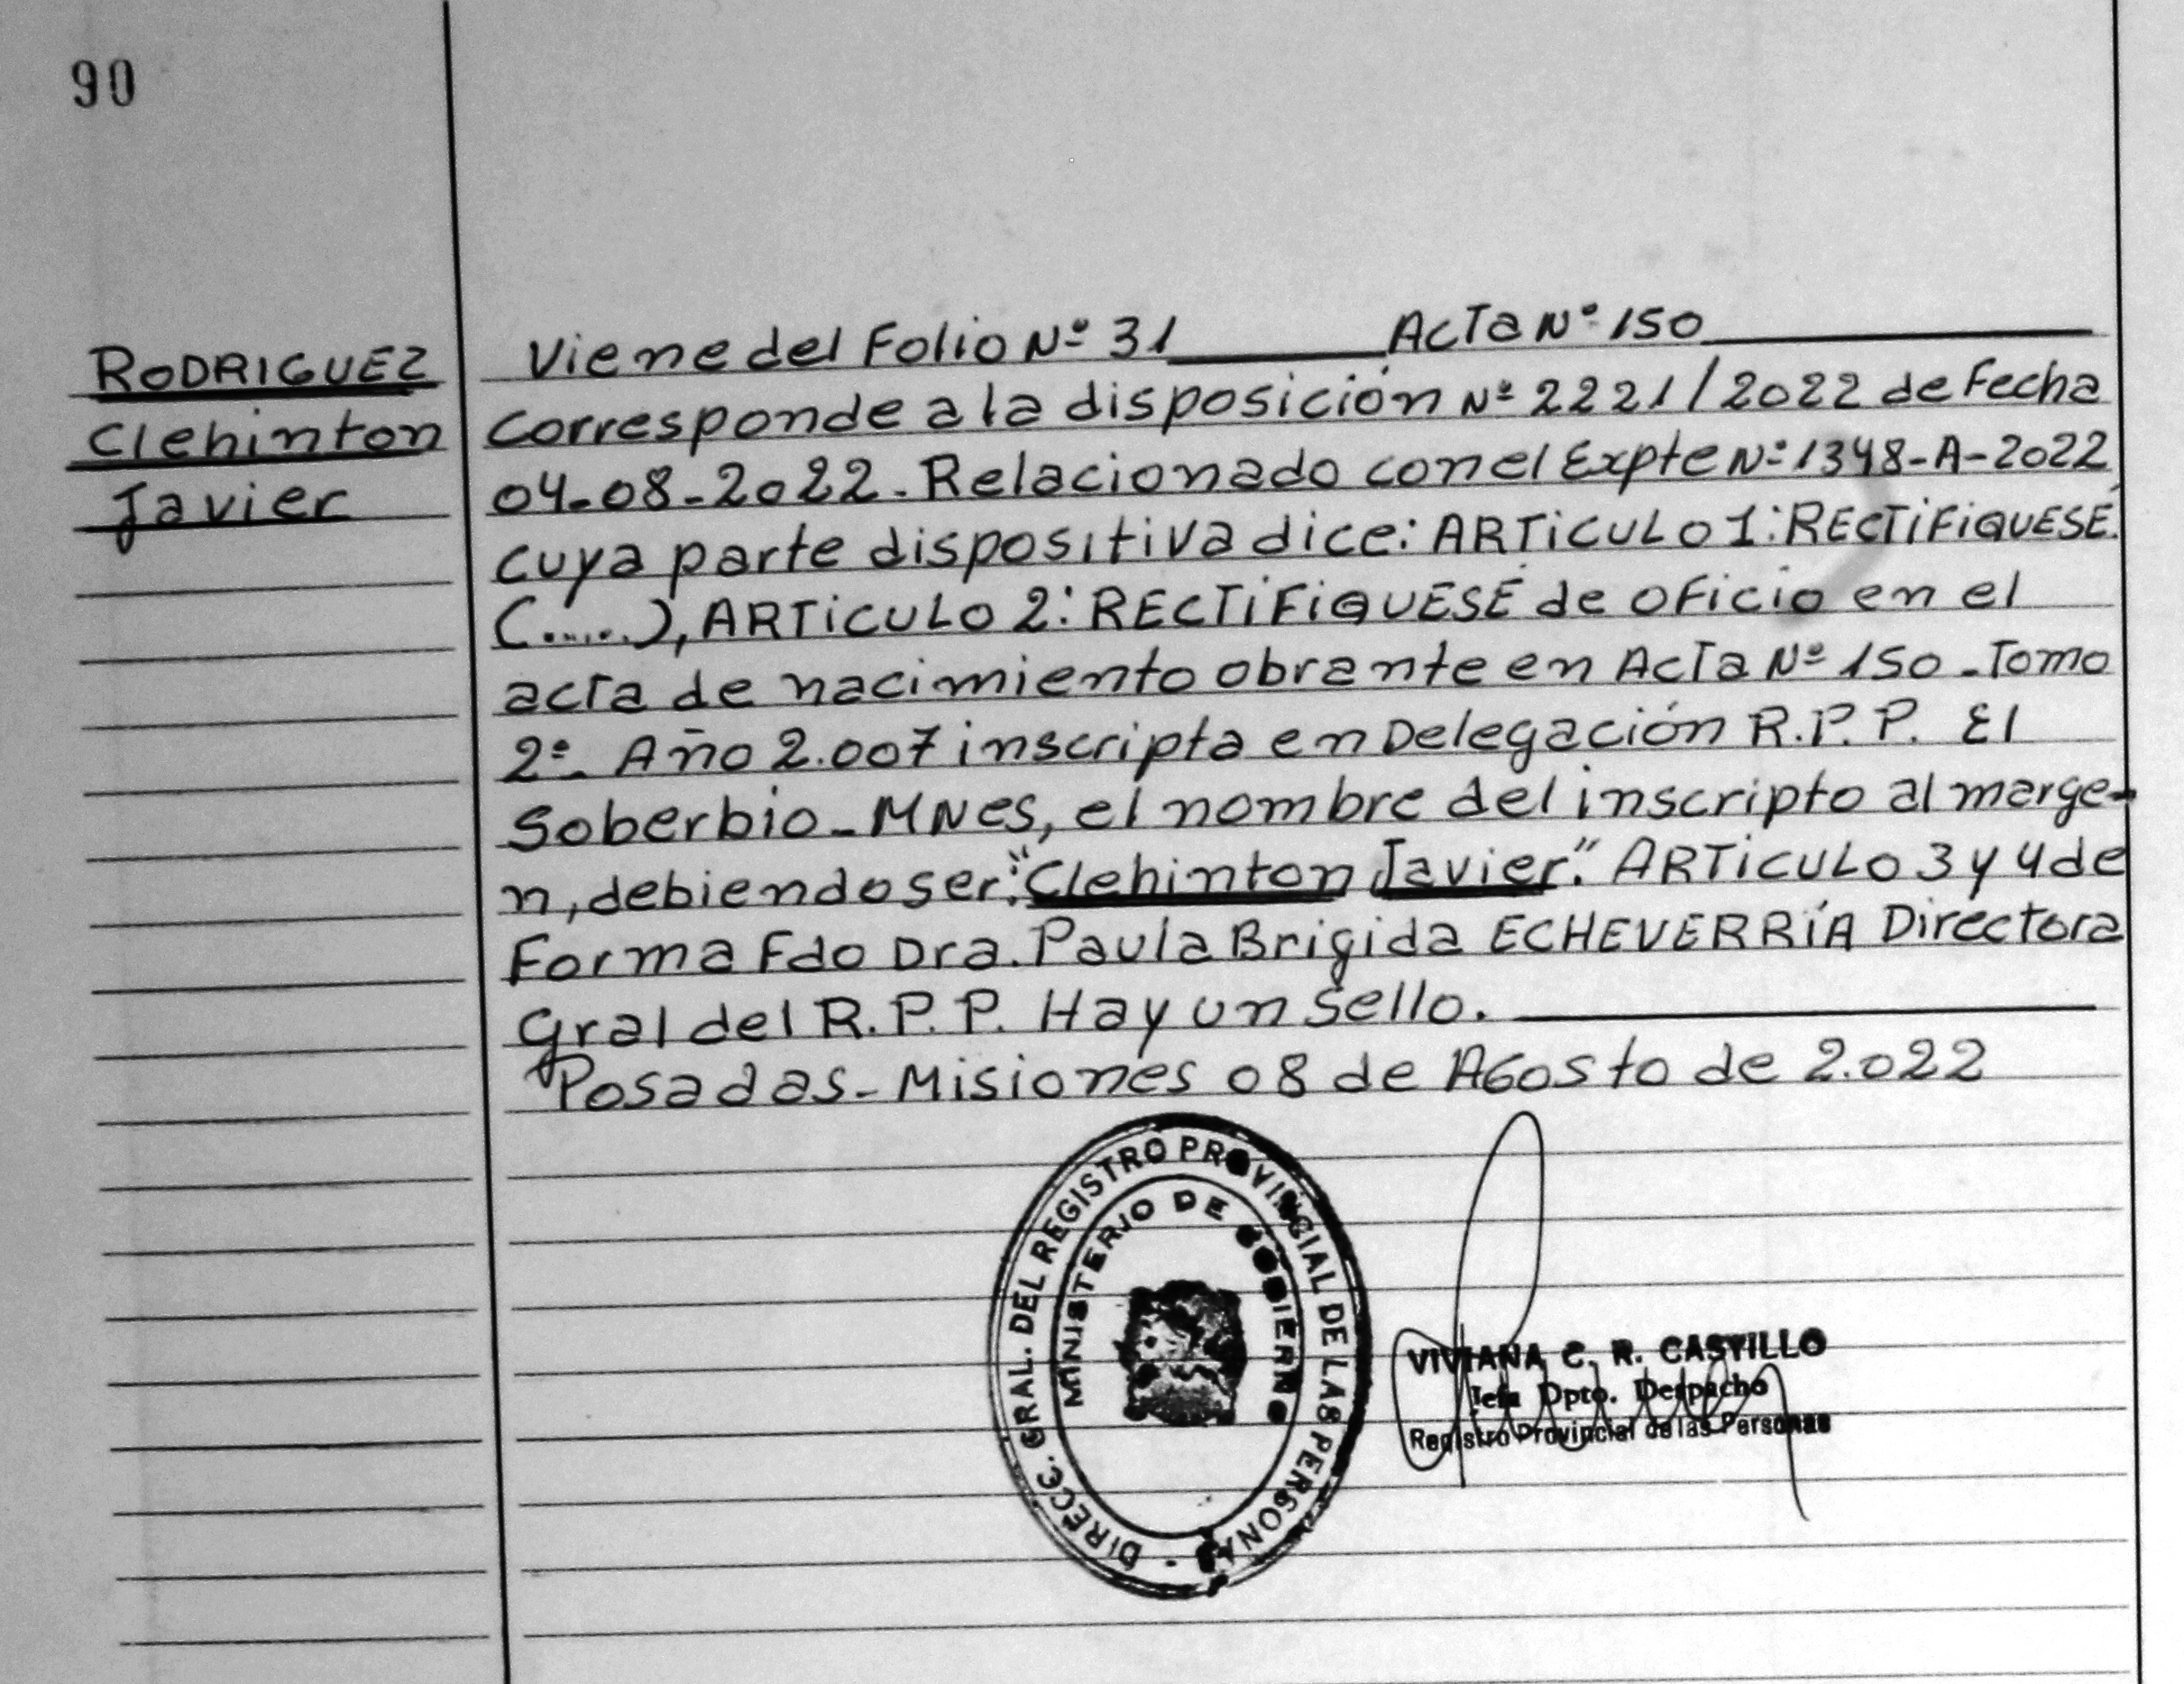 90
RODRIGUEZ
Clehinton
Javier
Viene del Folio Nº 31 ActaNº 150
Corresponde a la disposición Nº 2221/2022 de Fecha
04-08-2022. Relacionado con el Expte Nº 1348-A-2022
cuya parte dispositiva dice: ARTiCULO 1: RECTiFiQUESÉ
(......), ARTiCULO 2: RECTiFiQUESÉ de oficio en el
acta de nacimiento obrante en Acta Nº 150 - Tomo
2º- Año 2.007 inscripta en Delegación R.P.P. El
Soberbio - MNes, el nombre del inscripto al marge-
n, debiendo ser: "Clehinton Javier". ARTiCULO 3 y 4 de
Forma Fdo Dra. Paula Brigida ECHEVERRíA Directora
Gral del R.P.P. Hay un Sello.
Posadas - Misiones 08 de AGosto de 2.022
DIRECC. GRAL. DEL REGISTRO PROVINCIAL DE LAS PERSONAS -
MINISTERIO DE GOBIERNO
VIVIANA C. R. CASTILLO
Jefa Dpto. Despacho
Registro Provincial de las Personas